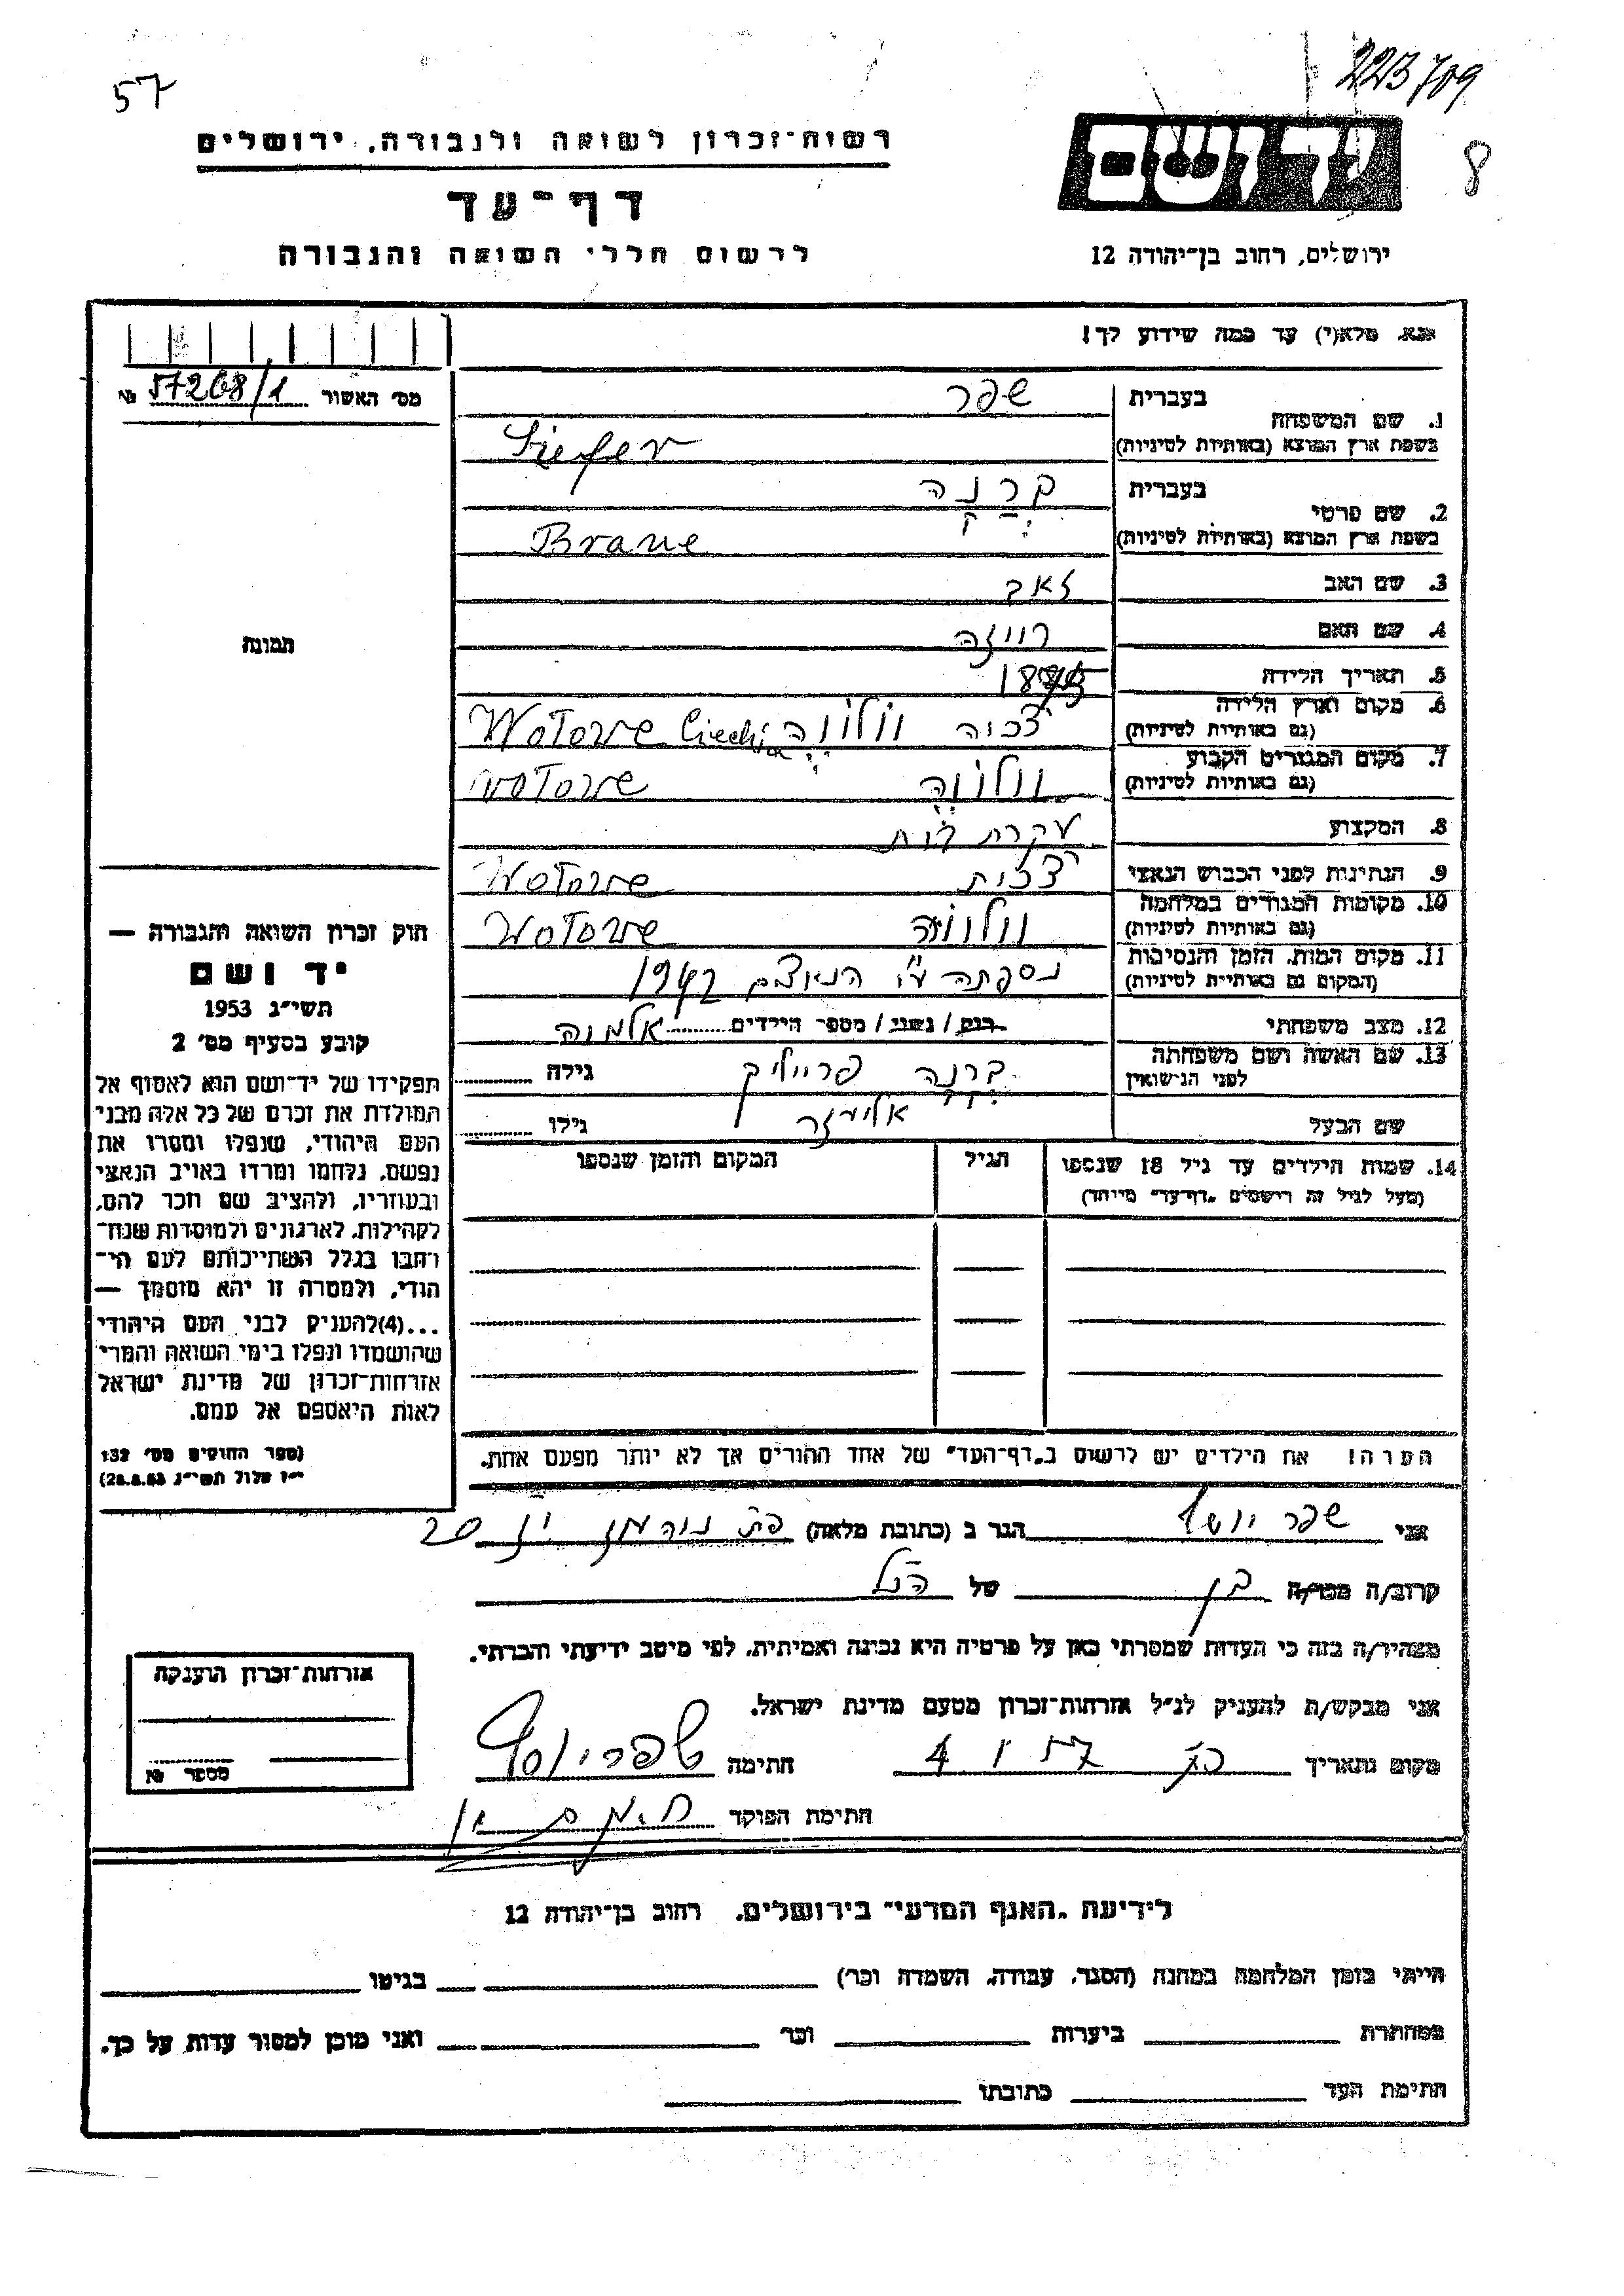 57
223709
8
רשות־זכרון לשואה ולגבורה, ירושלים
יד ושם
דף־עד
לרשום חללי השואה והגבורה
ירושלים, רחוב בן־יהודה 12
אנא, מלא(י) עד כמה שידוע לך!
מס׳ האשור 57268/1 №
1. שם המשפחה
בעברית שפר
בשפת ארץ המוצא (באותיות לטיניות) Siefer
2. שם פרטי
בעברית ברנה
בשפת ארץ המוצא (באותיות לטיניות) Brane
3. שם האב זאב
4. שם האם רייזה
5. תאריך הלידה
6. מקום וארץ הלידה
(גם באותיות לטיניות) צכיה Wotove
7. מקום המגורים הקבוע
(גם באותיות לטיניות) Wotove
8. המקצוע עקרת בית
9. הנתינות לפני הכבוש הנאצי צכית Wotove
10. מקומות המגורים במלחמה
(גם באותיות לטיניות) Wotove
11. מקום המות, הזמן והנסיבות
(המקום גם באותיות לטיניות) נספתה ע״י הנאצים 1942
12. מצב משפחתי רווק / נשוי / מספר הילדים אלמנה
13. שם האשה ושם משפחתה
לפני הנישואין ברנה פרייליק גילה
שם הבעל אליעזר גילו
14. שמות הילדים עד גיל 18 שנספו הגיל המקום והזמן שנספו
(מעל לגיל זה רושמים „דף־עד״ מיוחד)
הערה! את הילדים יש לרשום ב„דף־העד״ של אחד ההורים אך לא יותר מפעם אחת.
תמונה
חוק זכרון השואה והגבורה —
יד ושם
תשי״ג 1953
קובע בסעיף מס׳ 2
תפקידו של יד־ושם הוא לאסוף אל
המולדת את זכרם של כל אלה מבני
העם היהודי, שנפלו ומסרו את
נפשם, נלחמו ומרדו באויב הנאצי
ובעוזריו, ולהציב שם וזכר להם,
לקהילות, לארגונים ולמוסדות שנח־
רבו בגלל השתייכותם לעם הי־
הודי, ולמטרה זו יהא מוסמך —
...(4)להעניק לבני העם היהודי
שהושמדו ונפלו בימי השואה והמרי
אזרחות־זכרון של מדינת ישראל
לאות היאספם אל עמם.
(ספר החוקים מס׳ 132
י״ז אלול תשי״ג 28.8.53)
אני שפר יוסף הגר ב (כתובת מלאה) 20
קרוב/ה מכר/ה בן של הנ״ל
מצהיר/ה בזה כי העדות שמסרתי כאן על פרטיה היא נכונה ואמיתית, לפי מיטב ידיעתי והכרתי.
אני מבקש/ת להעניק לנ״ל אזרחות־זכרון מטעם מדינת ישראל.
מקום ותאריך חתימה שפר יוסף
חתימת הפוקד
אזרחות־זכרון הוענקה
מספר №
לידיעת „האגף המדעי״ בירושלים, רחוב בן־יהודה 12
הייתי בזמן המלחמה במחנה (הסגר, עבודה, השמדה וכו׳) בגיטו
במחתרת ביערות וכו׳ ואני מוכן למסור עדות על כך.
חתימת העד כתובתו